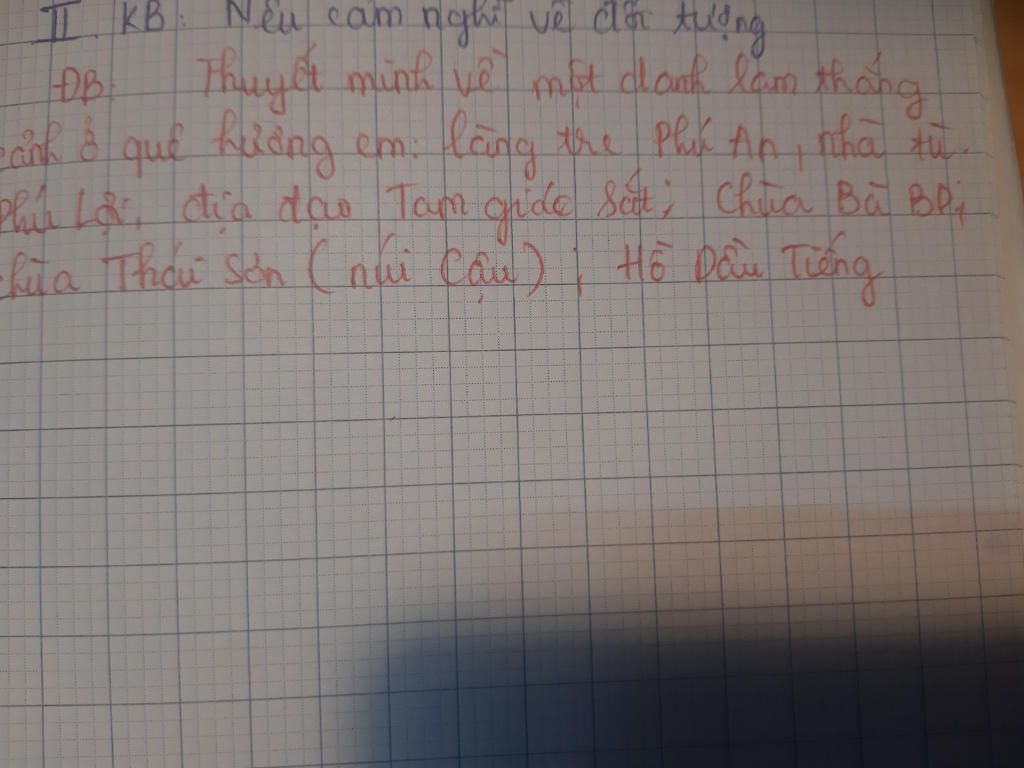 II. KB: Nêu cảm nghĩ về đối tượng
ĐB: Thuyết minh về một danh lam thắng
cảnh ở quê hương em: làng tre Phú An, nhà tù
Phú Lợi, địa đạo Tam giác sắt; Chùa Bà BD;
chùa Thái Sơn (núi Cậu); Hồ Dầu Tiếng